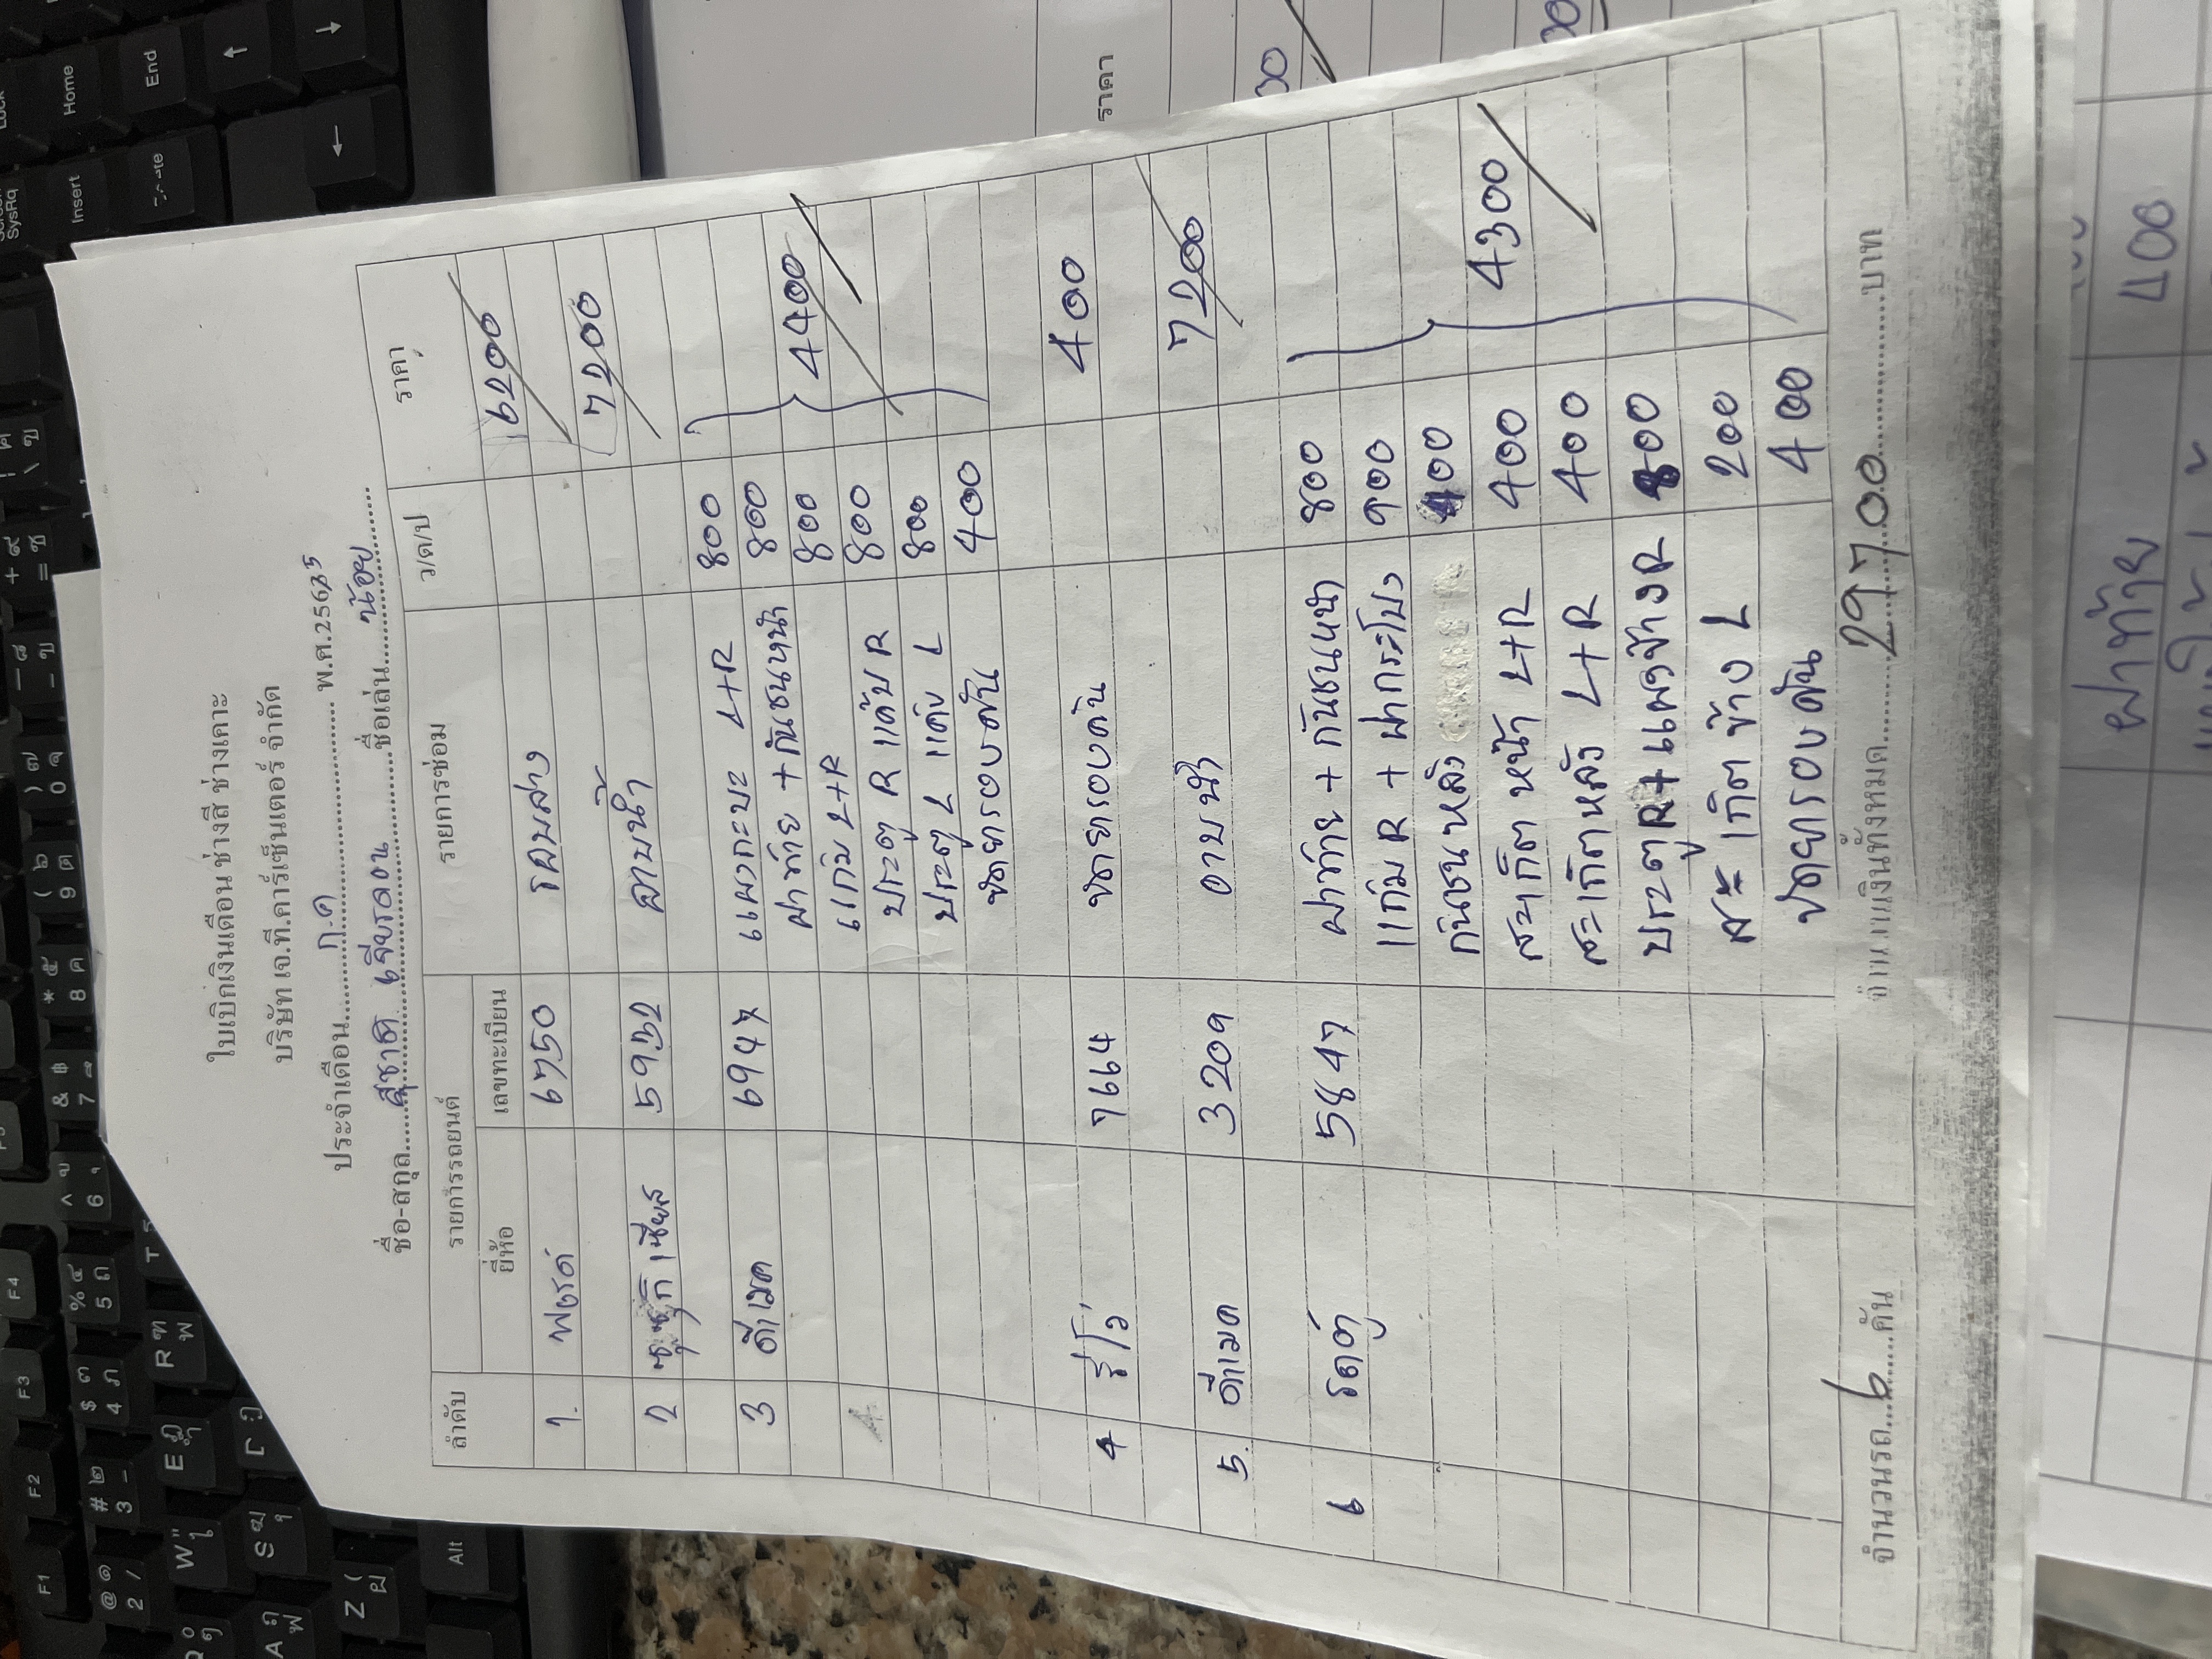 ใบเบิกเงินเดือน ช่างสี ช่างเคาะ
บริษัท เจ.ที.คาร์เซ็นเตอร์ จำกัด
ประจำเดือน ก.ค พ.ศ.2565
ชื่อ-สกุล สุชาติ ชื่อเล่น น้อย
ลำดับ รายการรถยนต์ รายการซ่อม ว/ด/ป ราคา
ยี่ห้อ เลขทะเบียน
1. ฟอร์ด 6750 รอบล่าง 6200
2 ซูซูกิ เซียส 5932 อาบน้ำ 7200
3 ดีแมค 6947 แผงกะบะ L+R 800
ฝาท้าย + กันชนหน้า 800
แก้ม L+R 800 4400
ประตู R แค๊บ R 800
ประตู L แค๊บ L 800
ขัดยารอบคัน 400
4 รีโว่ 7664 ขัดยารอบคัน 400
5. ดีแมค 3209 อาบน้ำ 7200
6 รถตู้ 5847 ฝาท้าย + กันชนหน้า 800
แก้ม R + ฝากระโปง 900
กันชนหลัง 400
สะเกิต หน้า L+R 400 4300
สะเกิตหลัง L+R 400
ประตูR+แผงข้างR 800
สะเกิต ข้าง L 200
ขัดยารอบคัน 400
จำนวนรถ 6 คัน จำนวนเงินทั้งหมด 29700 บาท
ราคา
ฝาท้าย 400
F1
F2
F3
F4
Alt
Home
End
Insert
SysRq